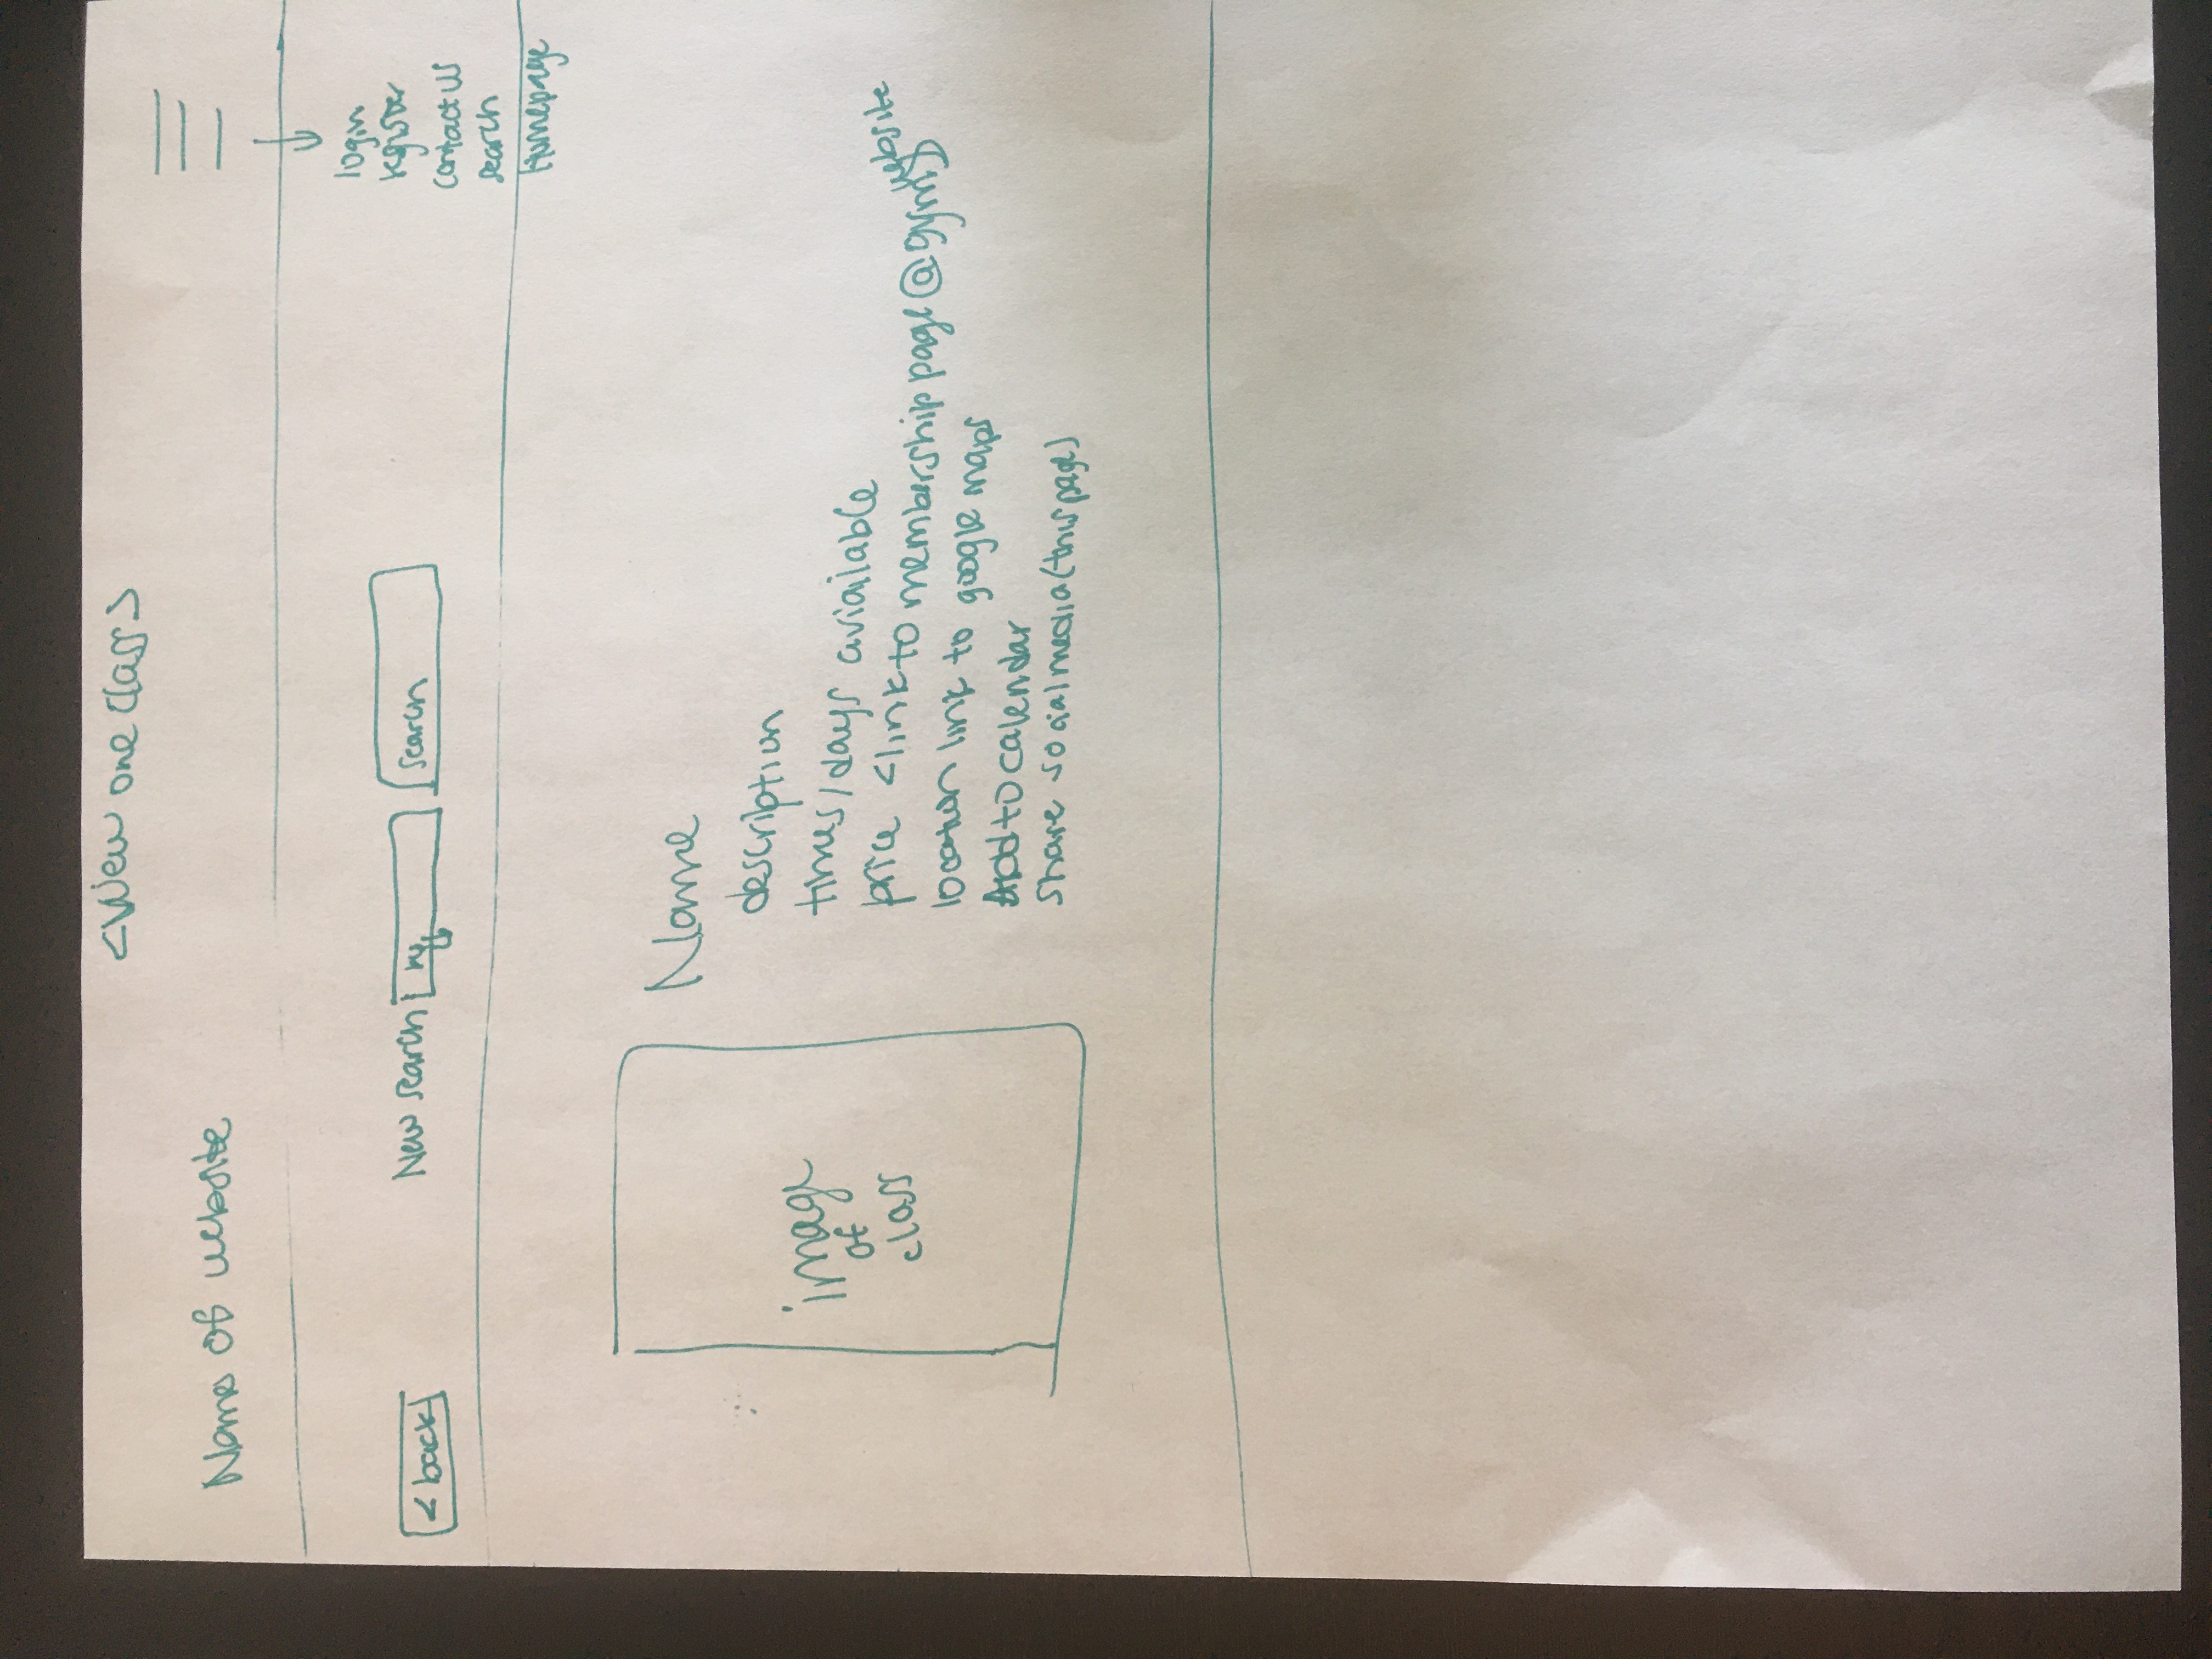 <View one class>
Name of website
login
register
contact us
search
Homepage
<back
New search
search
image
of
class
Name
description
times/days aviailable
price <link to membership page @ gym website>
location link to google maps
Add to calendar
share social media (this page)